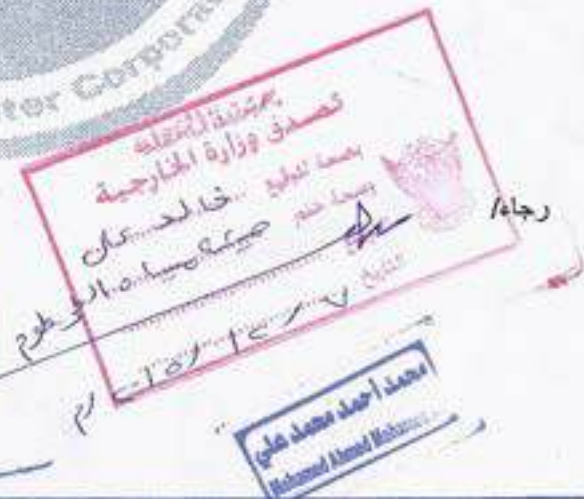 ter Corporat
جمهورية السودان
تصدق وزارة الخارجية
بصحة توقيع خالد علي
وبصحة ختم هيئة مياه الخرطوم
التاريخ
رجاء/
محمد أحمد محمد علي
Mohamed Ahmed Mohamed